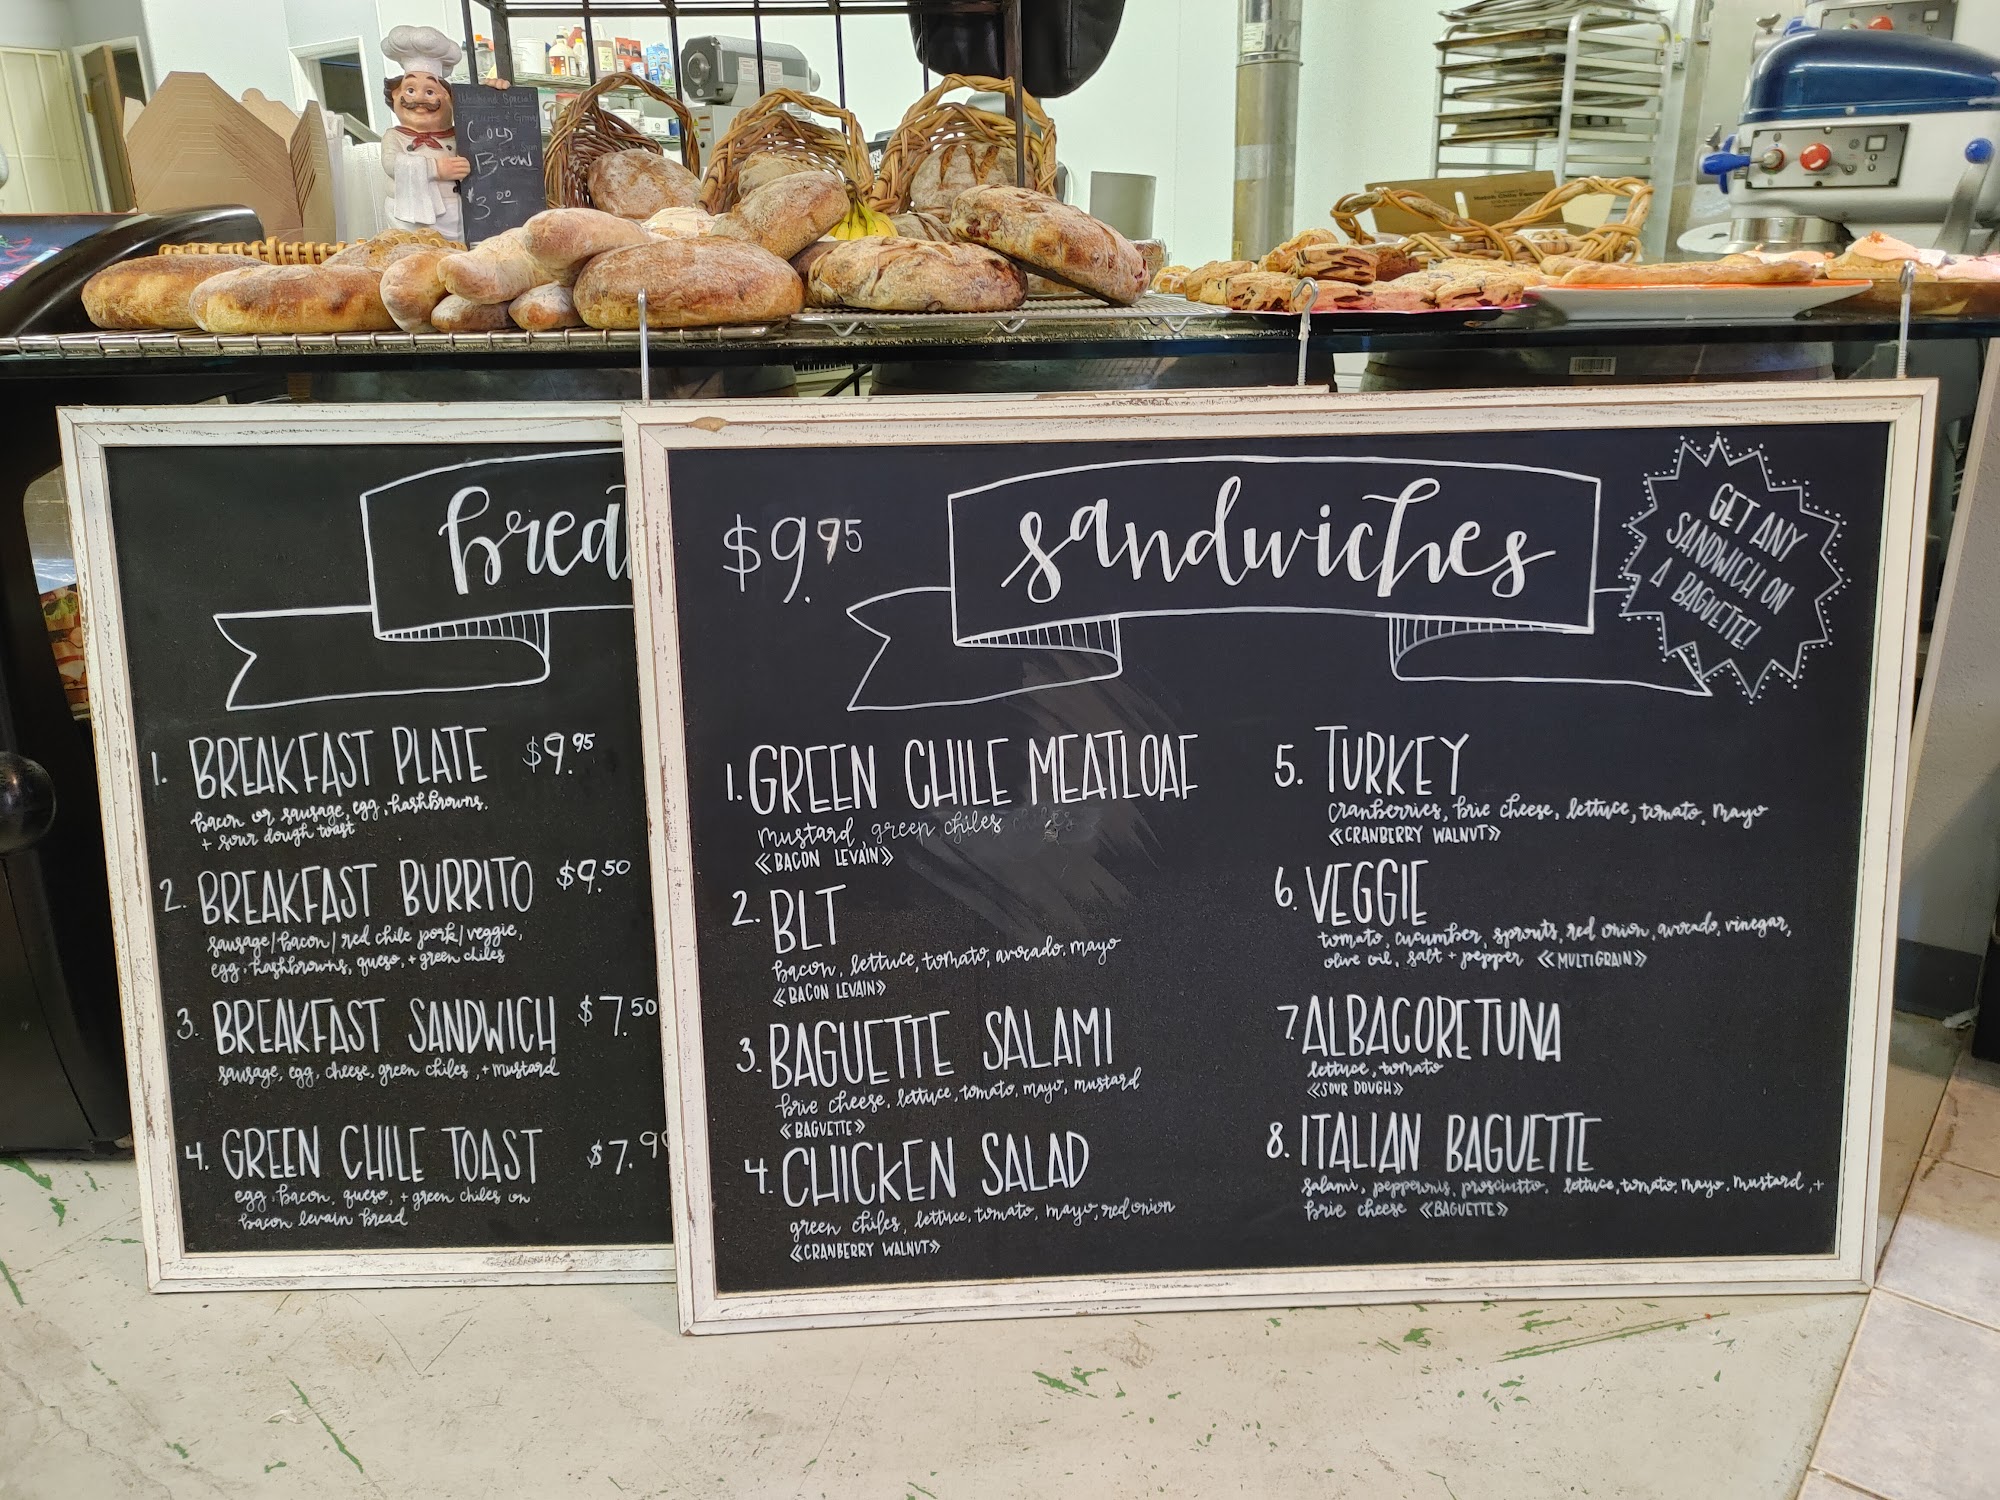 Weekend Special
Biscuits & Gravy
Cold
Brew
$3.00
brea
1. BREAKFAST PLATE $9.95
bacon or sausage, egg, hashbrowns,
+ sour dough toast
2. BREAKFAST BURRITO $9.50
sausage/bacon/red chile pork/veggie,
egg, hashbrowns, queso, + green chiles
3. BREAKFAST SANDWICH $7.50
sausage, egg, cheese, green chiles, + mustard
4. GREEN CHILE TOAST $7.99
egg, bacon, queso, + green chiles on
bacon levain bread
$9.95
sandwiches
GET ANY
SANDWICH ON
A BAGUETTE!
1. GREEN CHILE MEATLOAF
mustard, green chiles
«BACON LEVAIN»
2. BLT
bacon, lettuce, tomato, avocado, mayo
«BACON LEVAIN»
3. BAGUETTE SALAMI
brie cheese, lettuce, tomato, mayo, mustard
«BAGUETTE»
4. CHICKEN SALAD
green chiles, lettuce, tomato, mayo, red onion
«CRANBERRY WALNUT»
5. TURKEY
cranberries, brie cheese, lettuce, tomato, mayo
«CRANBERRY WALNUT»
6. VEGGIE
tomato, cucumber, sprouts, red onion, avocado, vinegar,
olive oil, salt + pepper «MULTIGRAIN»
7. ALBACORE TUNA
lettuce, tomato
«SOUR DOUGH»
8. ITALIAN BAGUETTE
salami, pepperonis, prosciutto, lettuce, tomato, mayo, mustard, +
brie cheese «BAGUETTE»